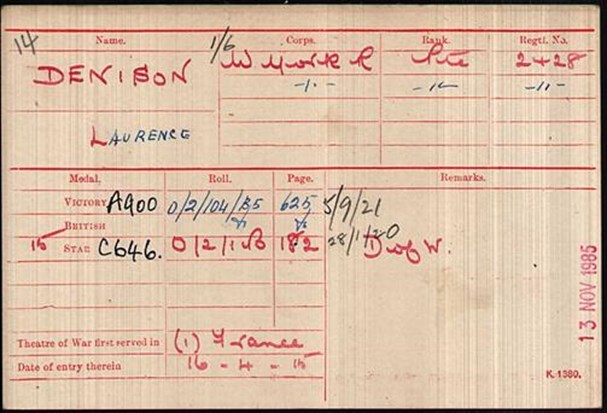 14
Name. Corps. Rank. Regtl. No.
DENISON 1/6 W York R Pte 2428
-"- -"- -"-
LAURENCE
Medal. Roll. Page. Remarks.
VICTORY A900 O/2/104/B5 625 5/9/21
BRITISH
15 STAR C646. O/2/1B 182 28/1/20 D of W.
Theatre of War first served in (1) France
Date of entry therein 16-4-15
K. 1380.
13 NOV 1985